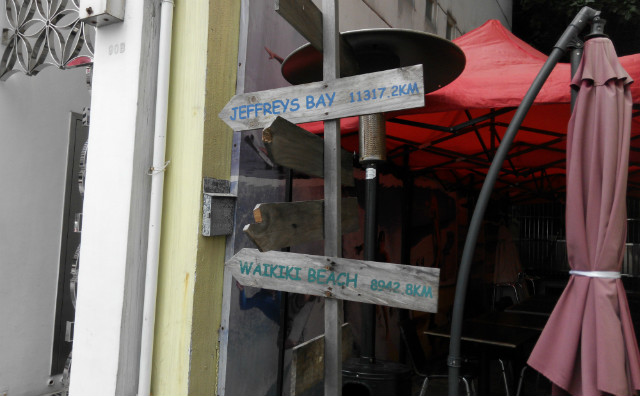 JEFFREYS BAY 11317.2KM
WAIKIKI BEACH 8942.8KM